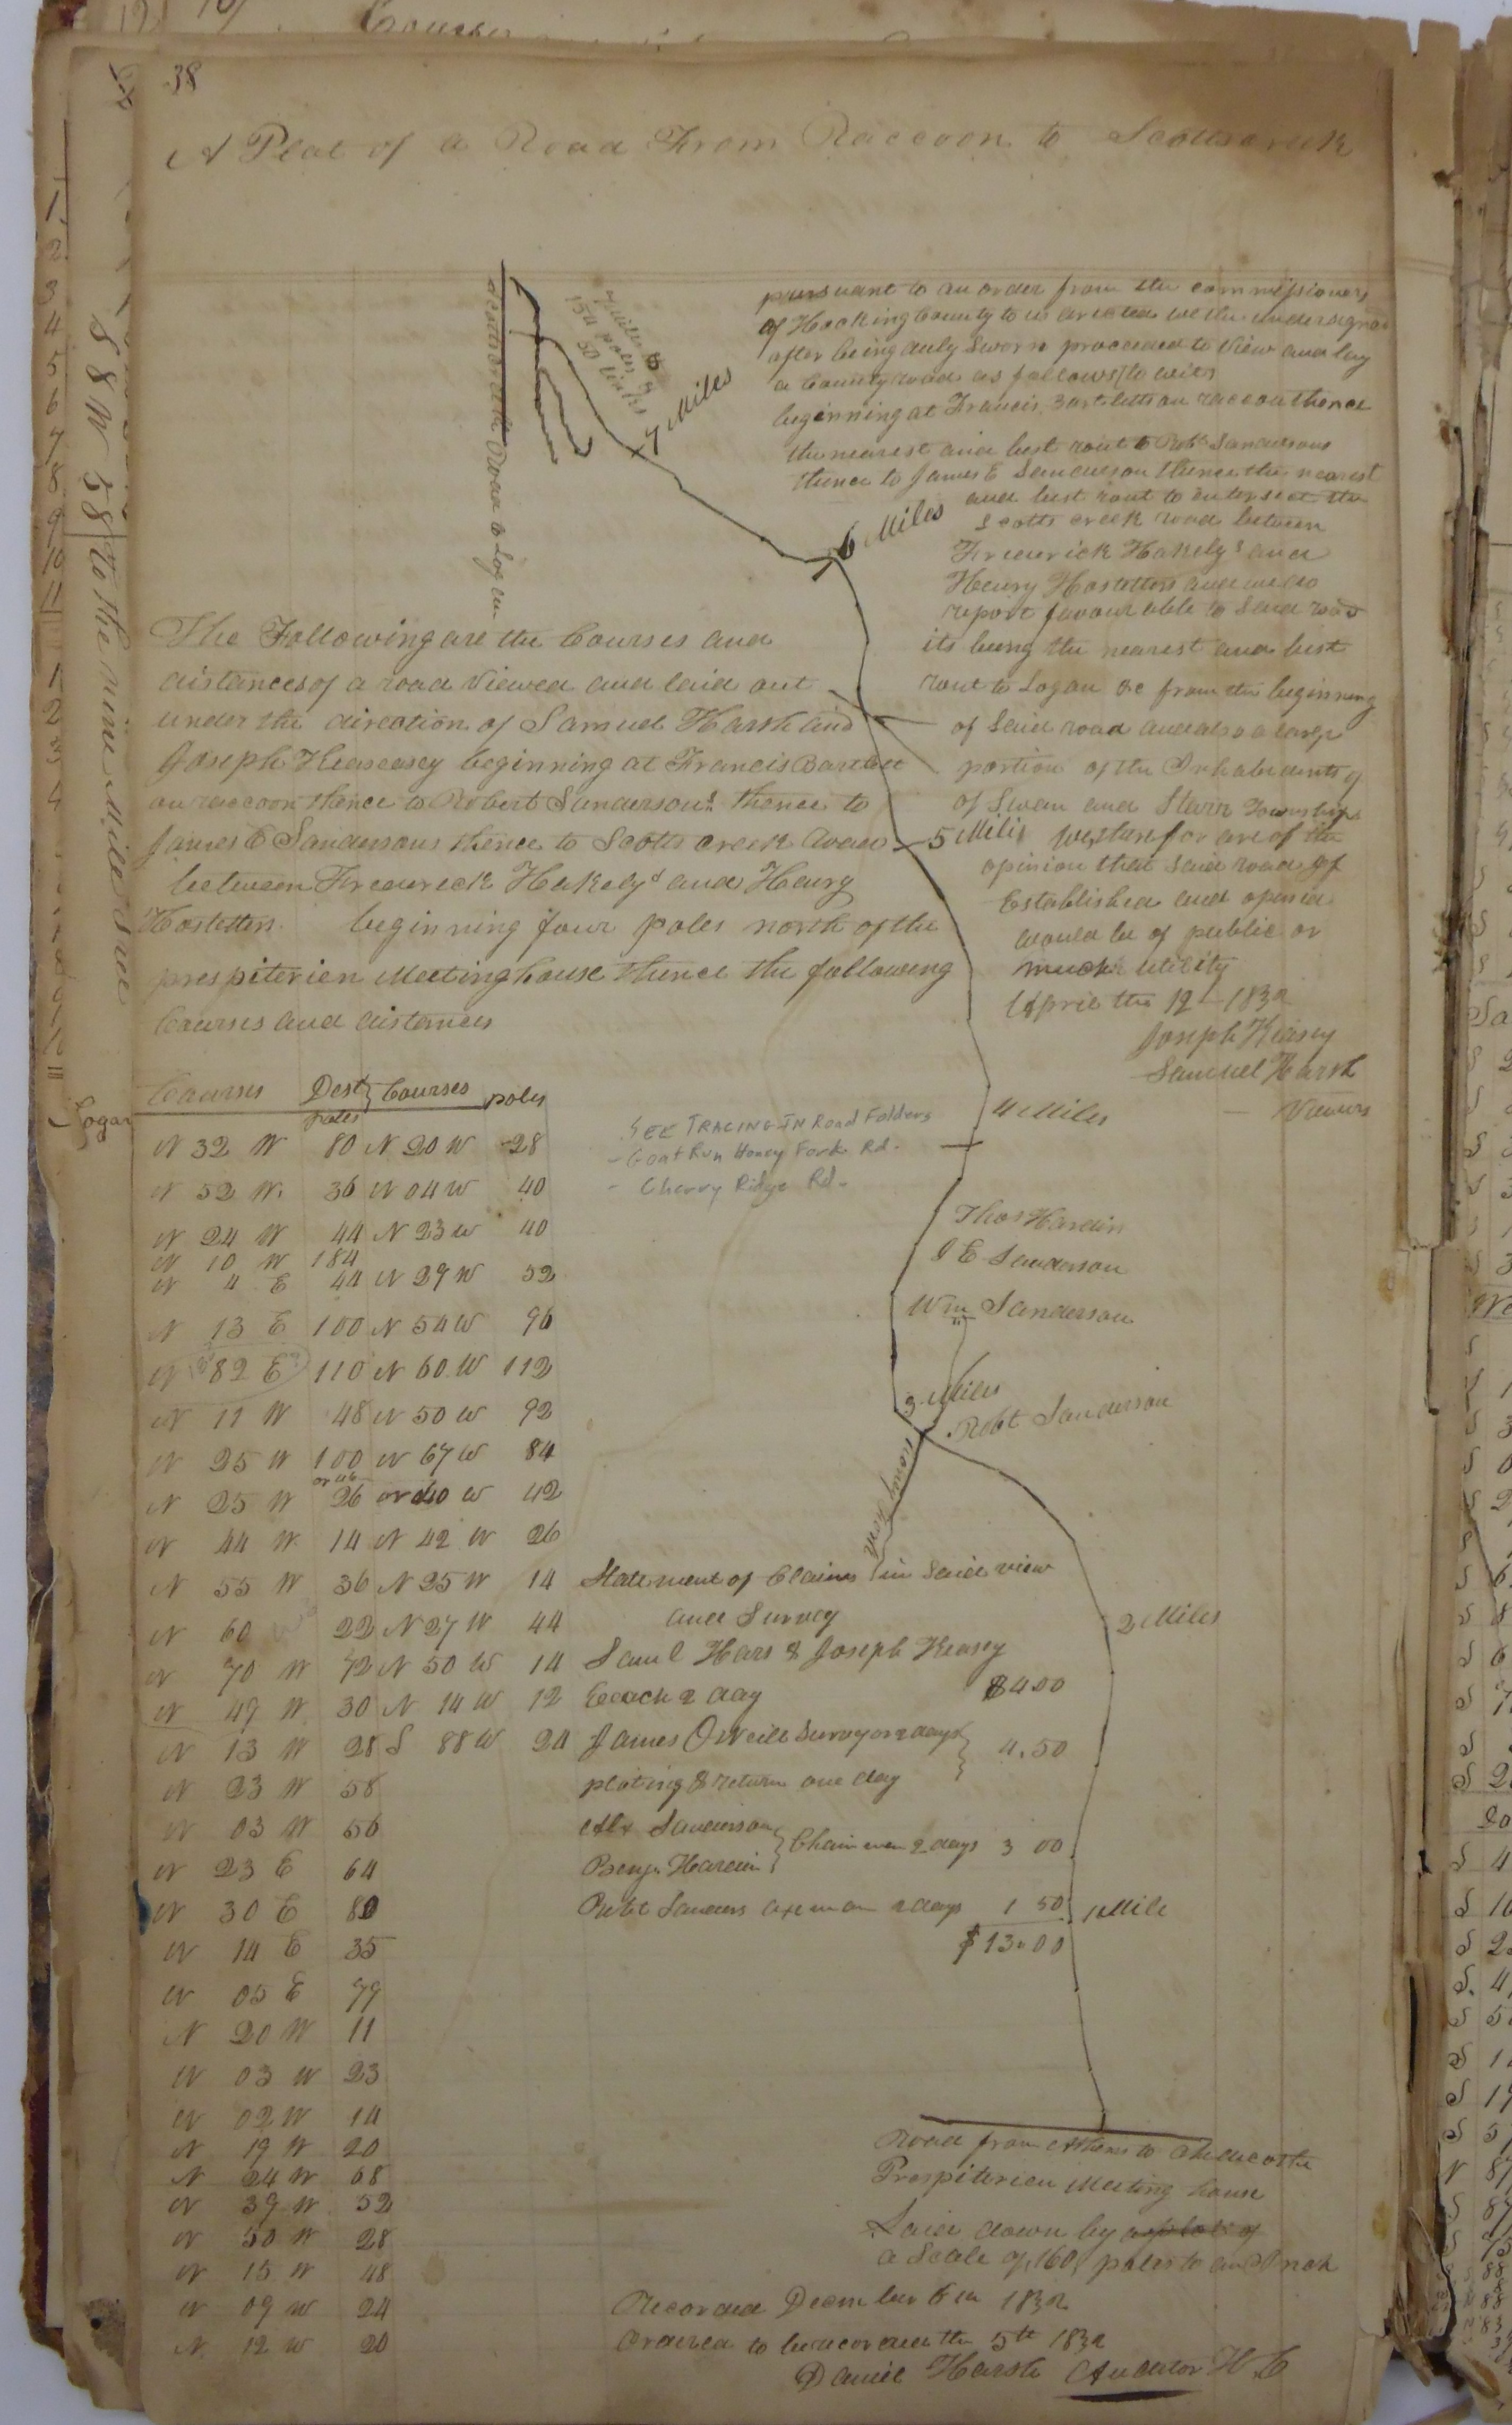 38
A Plat of a Road From Raccoon to Scottscreek
pursuant to an order from the commissioners
of Hocking County to us directed we the undersigned
after being duly Sworn proceeded to View and lay
a County road as follows (to wit)
beginning at Francis Bartletts on raccoon thence
the nearest and best rout to Robt Sandersons
thence to James E Sanderson thence the nearest
and best rout to intersect the
Scotts creek road between
Frederick Hakelys and
Henry Hostetters and we do
report favourable to Said road
its being the nearest and best
rout to Logan &c from the beginning
of Said road and also a large
portion of the Inhabidents of
of Swan and Starr Townships
we therefor are of the
opinion that Said road if
Established and opened
would be of public or
much utility
April the 12 - 1832
Joseph Keasey
Samuel Harsh
Viewers
Scotts creek Road to Logan
7 Miles &
154 poles &
50 links
7 Miles
6 Miles
5 Miles
4 Miles
Thos Hardin
J E Sanderson
Wm Sanderson
3 Miles
Robt Sanderson
Hony Fork
2 Miles
1 Mile
The Following are the Courses and
distances of a road Viewed and laid out
under the direction of Samuel Harsh and
Joseph Keaseasey beginning at Francis Bartlett
on raccoon thence to Robert Sandersons thence to
James E Sandersons thence to Scotts creek Road
between Frederick Hakelys and Henry
Hostetters. beginning four poles north of the
prespiterien Meeting house thence the following
Courses and distances
Courses Dest Courses poles
poles
N 32 W 80 N 20 W 28
N 52 W. 36 N 04 W 40
N 24 W 44 N 23 W 40
N 10 W 184
N 4 E 44 N 29 W 52
N 13 E 100 N 54 W 96
N 82 E 110 N 60 W 112
N 11 W 48 N 50 W 92
N 25 W 100 N 67 W 84
or 46
N 25 W 26 or 40 W 42
N 44 W 14 N 42 W 26
N 55 W 36 N 25 W 14
N 60 22 N 27 W 44
N 70 W 72 N 50 W 14
N 49 W 30 N 14 W 12
N 13 W 28 S 88 W 24
N 23 W 58
N 03 W 56
N 23 E 64
N 30 E 80
N 14 E 35
N 05 E 79
N 20 W 11
N 03 W 23
N 02 W 14
N 19 W 20
N 24 W 68
N 39 W 52
N 50 W 28
N 15 W 48
N 09 W 24
N. 12 W 20
SEE TRACING IN Road Folders
- Goat Run Honey Fork Rd.
- Cherry Ridge Rd.
Statement of Claims in Said view
and Survey
Saml Hars & Joseph Keasey
Eeach 2 day $4.00
James ONeill Surveyor 2 days
plating & return one day 4.50
Alx Sanderson
Benj. Hardin Chain men 2 days 3 00
Robt Sanders axe man 2 days 1 50
$13.00
Road from Athens to Chillicothe
Prespiterien Meeting house
Laid down by a plot of
a Scale of 160 poles to an Inch
Recorded December 6th 1832
Ordered to be recorded the 5th 1832
Daniel Harsh Auditor H C
S 8 W 58 to the nine Mile tree
Logan